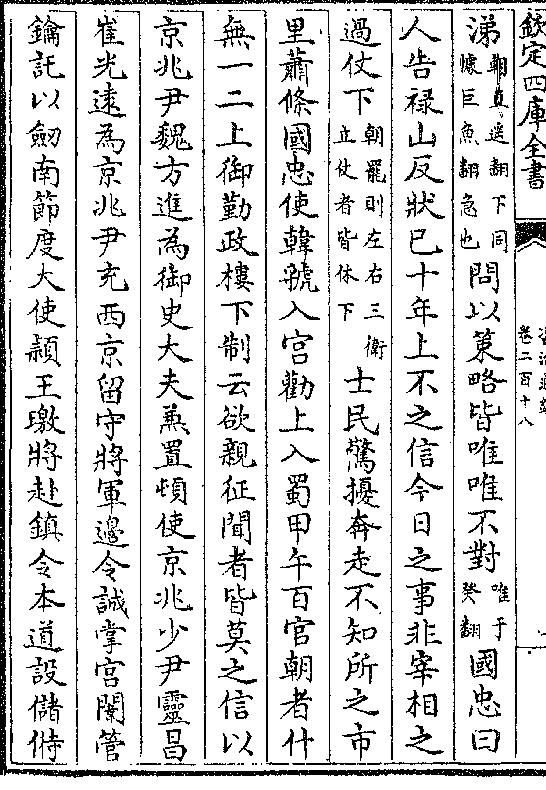 欽定四庫全書
卷二百十八
涕朝直遥翻下同懅巨魚翻急也問以策略皆唯唯不對唯于癸翻國忠曰
人告禄山反狀已十年上不之信今日之事非宰相之
過仗下朝罷則左右三衛立仗者皆休下士民驚擾奔走不知所之市
里蕭條國忠使韓虢入宮勸上入蜀甲午百官朝者什
無一二上御勤政樓下制云欲親征聞者皆莫之信以
京兆尹魏方進為御史大夫兼置頓使京兆少尹靈昌
崔光遠為京兆尹充西京留守將軍邊令誠掌宮闈管
鑰託以劒南節度大使頴王璬將赴鎮令本道設儲偫